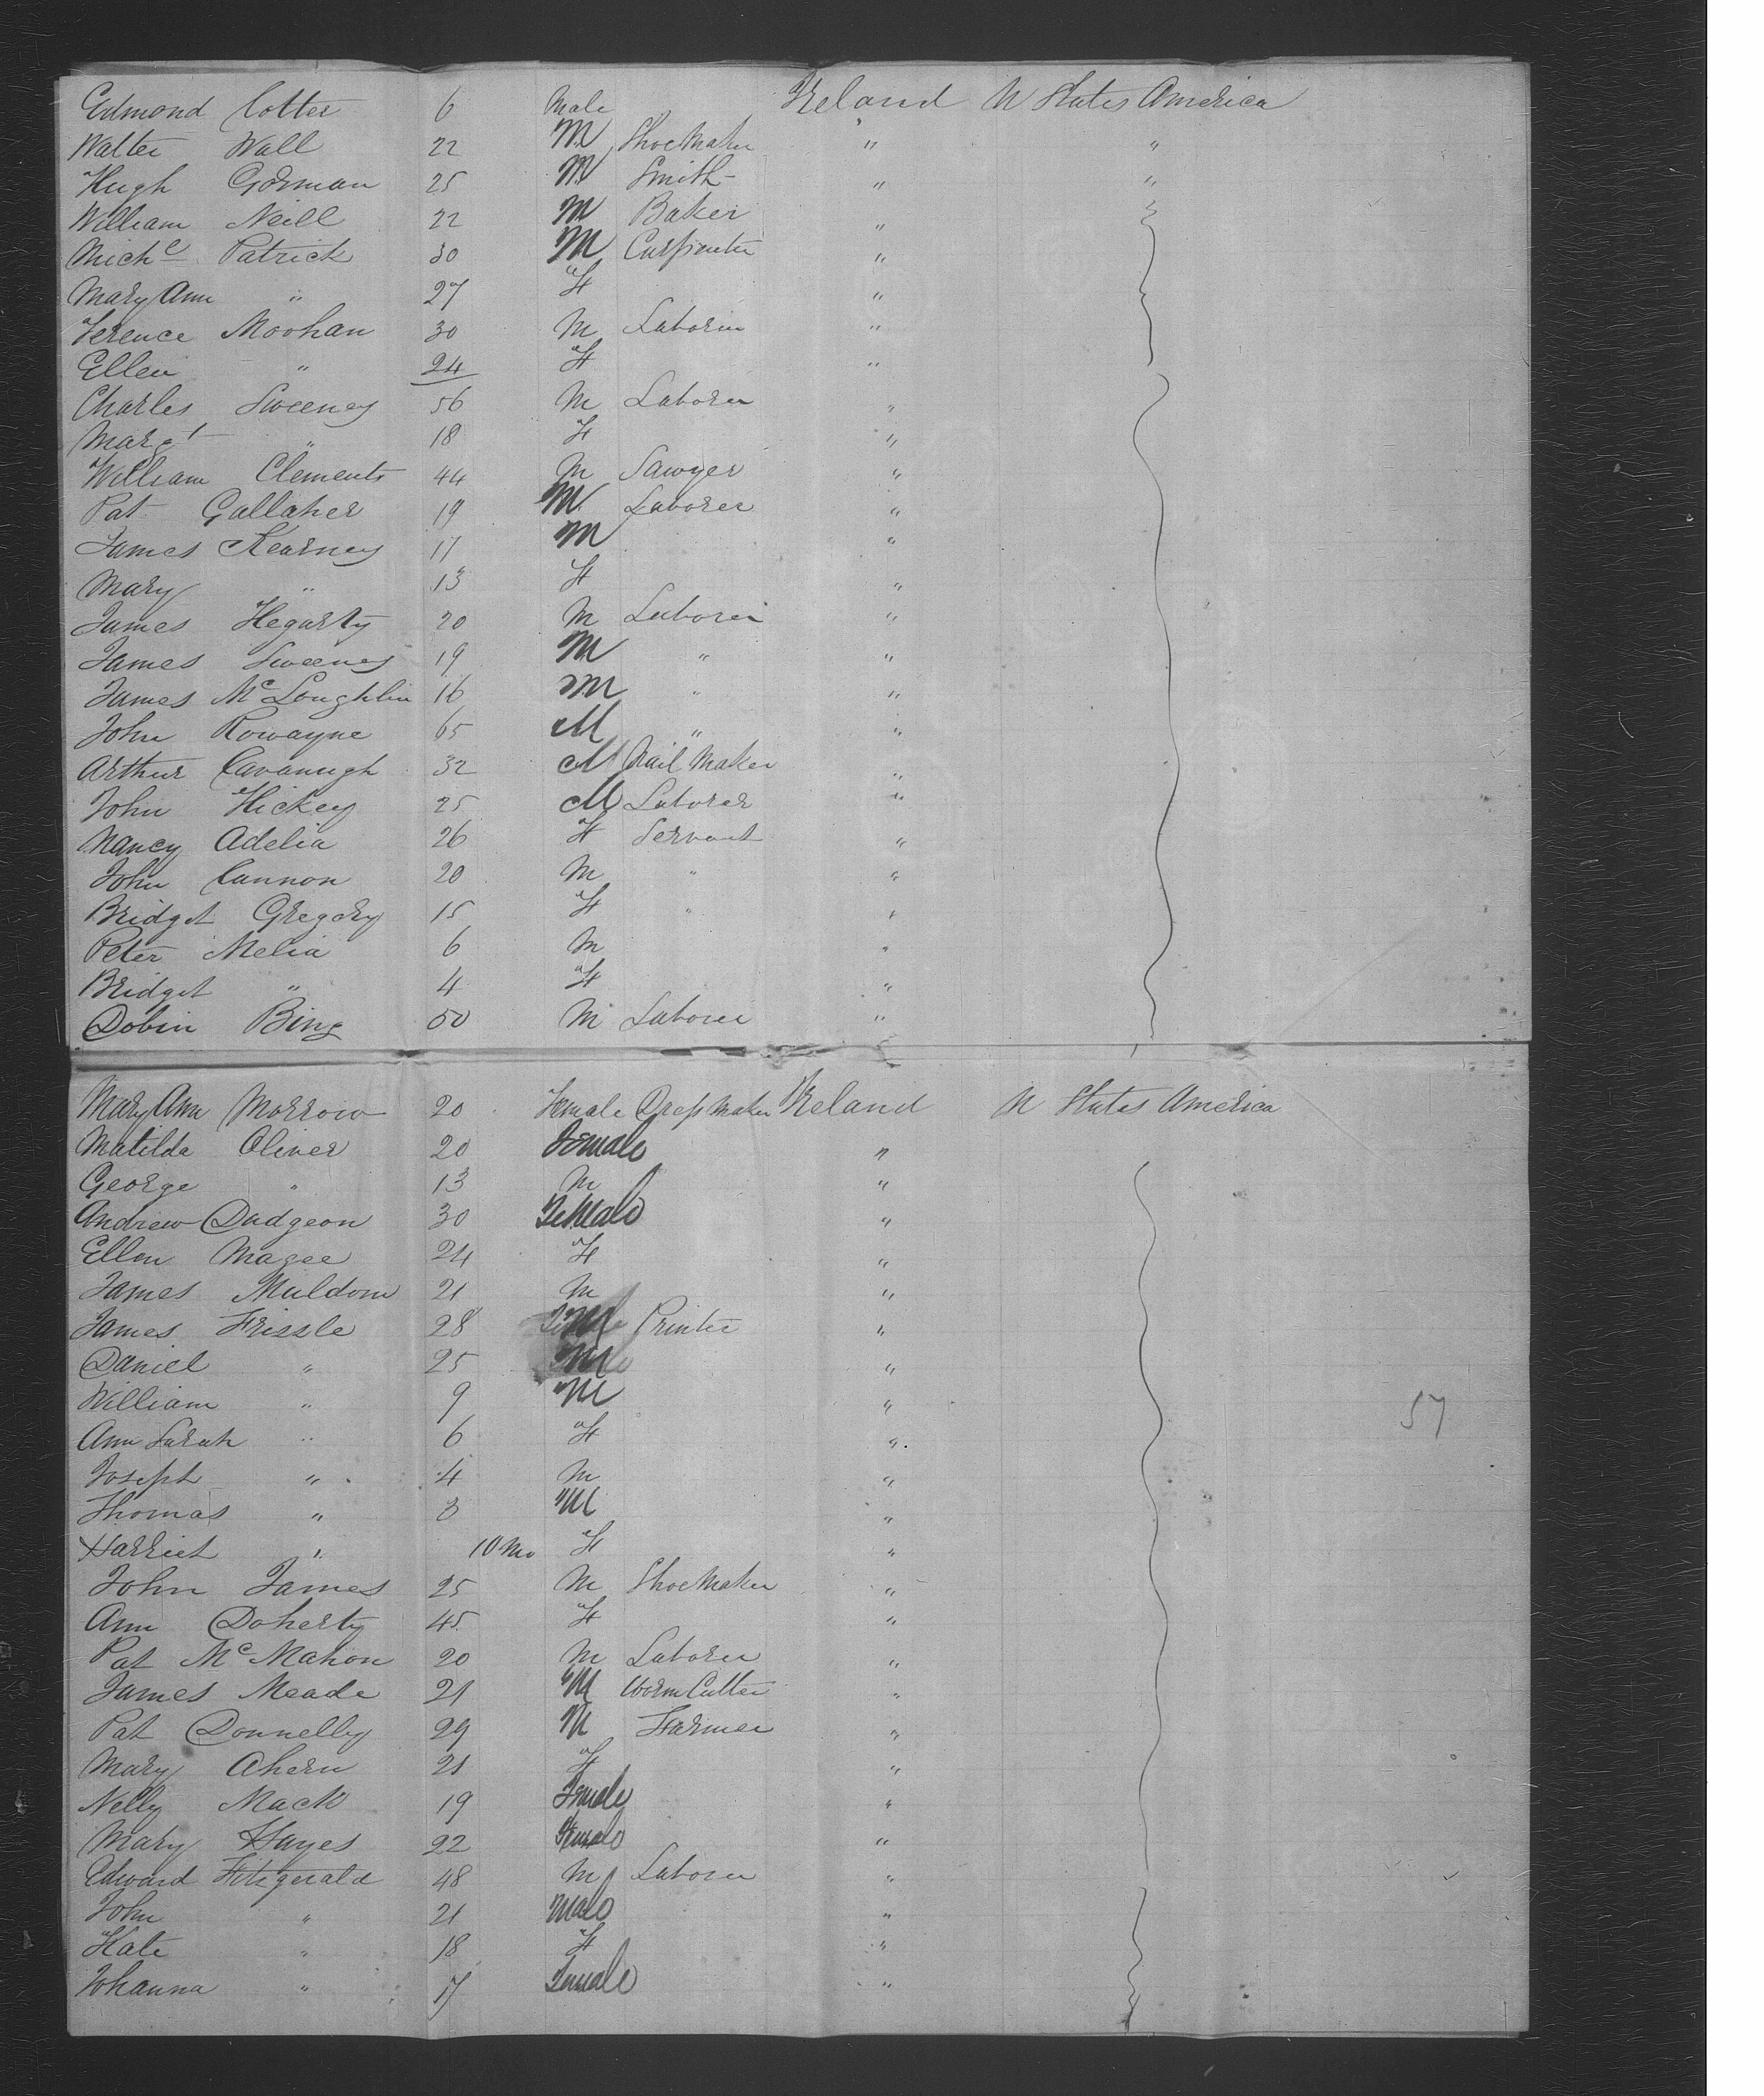 Edmond Cotter 6 Male Ireland U States America
Walter Wall 22 M Shoe Maker " "
Hugh Gorman 25 M Smith " "
William Neill 22 M Baker "
Michl Patrick 30 M Carpenter "
Mary Ann " 27 F "
Terence Moohan 30 M Laborer "
Ellen " 24 F "
Charles Sweeney 56 M Laborer "
Margt " 18 F "
William Clements 44 M Sawyer "
Pat Gallaher 19 M Laborer "
James Kearney 17 M "
Mary " 13 F "
James Hegarty 20 M Laborer "
James Sweeney 19 M " "
James McLoughlin 16 M " "
John Rowayne 65 M " "
Arthur Cavanugh 32 M Nail Maker "
John Hickey 25 M Laborer "
Nancy Adelia 26 F Servant "
John Cannon 20 M " "
Bridget Gregory 15 F " "
Peter Melia 6 M "
Bridget " 4 F "
Dobin Bing 50 M Laborer "
Mary Ann Morrow 20 Female Dress Maker Ireland U States America
Matilda Oliver 20 Female "
George " 13 M "
Andrew Dudgeon 30 Female "
Ellen Magee 24 F "
James Muldoon 21 M "
James Frizzle 28 M Printer "
Daniel " 25 M "
William " 9 M "
Ann Sarah " 6 F "
Joseph " 4 M "
Thomas " 3 M "
Harriet " 10 Mo F "
John James 25 M Shoe Maker "
Ann Doherty 45 F "
Pat McMahon 20 M Laborer "
James Meade 21 M Cutter "
Pat Donnelly 29 M Farmer "
Mary Ahern 21 F "
Nelly Mack 19 Female "
Mary Hayes 22 Female "
Edward Fitzgerald 48 M Laborer "
John " 21 Male "
Kate " 18 F "
Johanna " 17 Female "
57